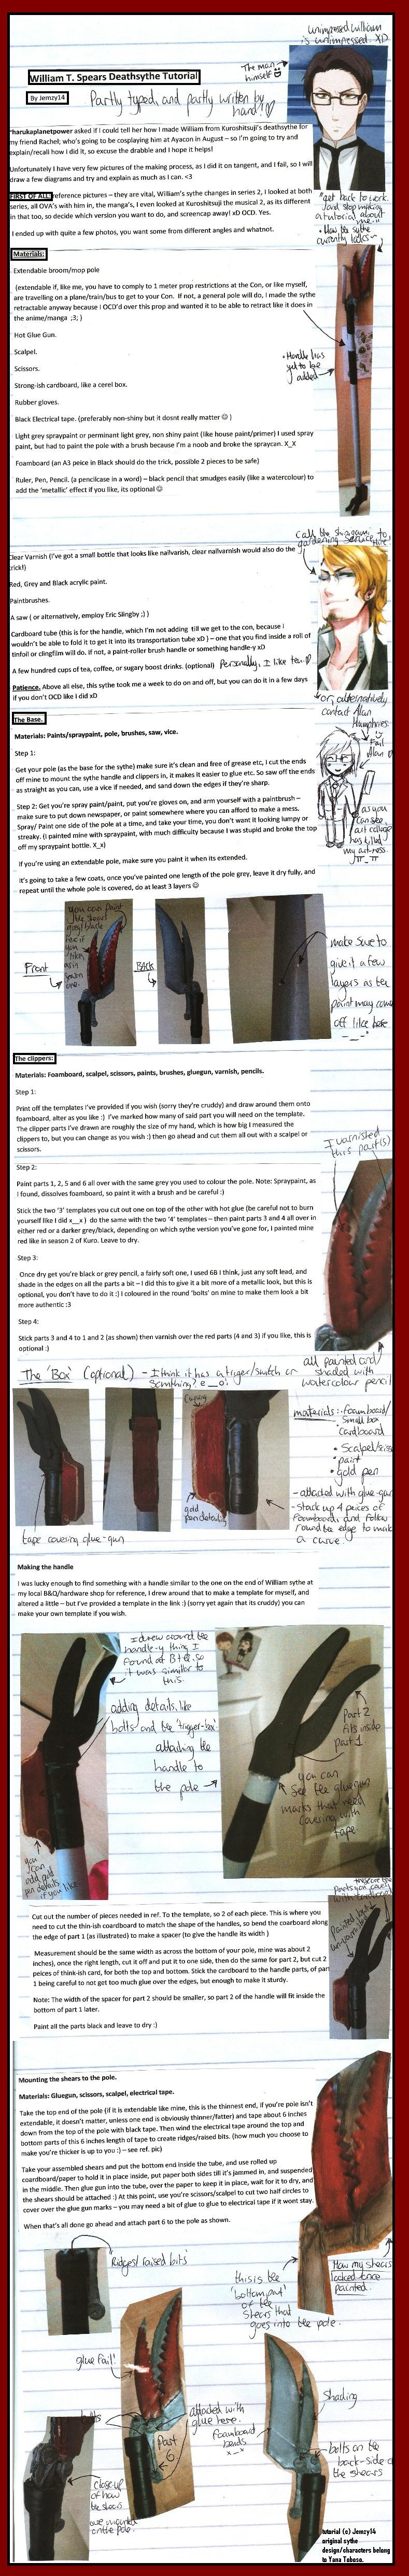 unimpressed William
is unimpressed. XD
The man
himself
William T. Spears Deathsythe Tutorial
By Jemzy14
Partly typed, and partly written by
hand!
*harukaplanetpower asked if I could tell her how I made William from Kuroshitsuji's deathsythe for
my friend Rachel; who's going to be cosplaying him at Ayacon in August – so I'm going to try and
explain/recall how I did it, so excuse the drabble and I hope it helps!
Unfortunately I have very few pictures of the making process, as I did it on tangent, and I fail, so I will
draw a few diagrams and try and explain as much as I can. <3
FIRST OF ALL reference pictures – they are vital, William's sythe changes in series 2, I looked at both
series, all OVA's with him in, the manga's, I even looked at Kuroshitsuji the musical 2, as its different
in that too, so decide which version you want to do, and screencap away! xD OCD. Yes.
I ended up with quite a few photos, you want some from different angles and whatnot.
"get back to work
and stop making
a tutorial about
me.."
• How the sythe
currently looks
Materials:
Extendable broom/mop pole
(extendable if, like me, you have to comply to 1 meter prop restrictions at the Con, or like myself,
are travelling on a plane/train/bus to get to your Con.  If not, a general pole will do, I made the sythe
retractable anyway because I OCD'd over this prop and wanted it to be able to retract like it does in
the anime/manga  ;3; )
Hot Glue Gun.
Scalpel.
Scissors.
Strong-ish cardboard, like a cerel box.
Rubber gloves.
• Handle has
yet to be
added
Black Electrical tape. (preferably non-shiny but it dosnt really matter ☺ )
Light grey spraypaint or perminant light grey, non shiny paint (like house paint/primer) I used spray
paint, but had to paint the pole with a brush because I'm a noob and broke the spraycan. X_X
Foamboard (an A3 peice in Black should do the trick, possible 2 pieces to be safe)
Ruler, Pen, Pencil. (a pencilcase in a word) – black pencil that smudges easily (like a watercolour) to
add the 'metallic' effect if you like, its optional ☺
call the shinigami
gardening service
Clear Varnish (i've got a small bottle that looks like nailvarish, clear nailvarnish would also do the
trick!)
Red, Grey and Black acrylic paint.
Paintbrushes.
A saw ( or alternatively, employ Eric Slingby ;) )
Cardboard tube (this is for the handle, which I'm not adding  till we get to the con, because i
wouldn't be able to fold it to get it into its transportation tube xD ) – one that you find inside a roll of
tinfoil or clingfilm will do. If not, a paint-roller brush handle or something handle-y xD
A few hundred cups of tea, coffee, or sugary boost drinks. (optional) Personally, I like tea
Patience. Above all else, this sythe took me a week to do on and off, but you can do it in a few days
if you don't OCD like I did xD
or, alternatively
contact Alan
Humphries
Fail
Alan
as you
can see,
art college
has killed
my art-ness.
The Base.
Materials: Paints/spraypaint, pole, brushes, saw, vice.
Step 1:
Get your pole (as the base for the sythe) make sure it's clean and free of grease etc, I cut the ends
off mine to mount the sythe handle and clippers in, it makes it easier to glue etc. So saw off the ends
as straight as you can, use a vice if needed, and sand down the edges if they're sharp.
Step 2: Get you're spray paint/paint, put you're gloves on, and arm yourself with a paintbrush –
make sure to put down newspaper, or paint somewhere where you can afford to make a mess.
Spray/ Paint one side of the pole at a time, and take your time, you don't want it looking lumpy or
streaky. (I painted mine with spraypaint, with much difficulty because I was stupid and broke the top
off my spraypaint bottle. X_x)
If you're using an extendable pole, make sure you paint it when its extended.
It's going to take a few coats, once you've painted one length of the pole grey, leave it dry fully, and
repeat until the whole pole is covered, do at least 3 layers ☺
Front
BACK
make sure to
give it a few
layers as the
paint may come
off like here
The clippers:
Materials: Foamboard, scalpel, scissors, paints, brushes, gluegun, varnish, pencils.
Step 1:
Print off the templates I've provided if you wish (sorry they're cruddy) and draw around them onto
foamboard, alter as you like :)  I've marked how many of said part you will need on the template.
The clipper parts I've drawn are roughly the size of my hand, which is how big I measured the
clippers to, but you can change as you wish :) then go ahead and cut them all out with a scalpel or
scissors.
I varnished
this part(s)
Step 2:
Paint parts 1, 2, 5 and 6 all over with the same grey you used to colour the pole. Note: Spraypaint, as
I found, dissolves foamboard, so paint it with a brush and be careful :)
Stick the two '3' templates you cut out one on top of the other with hot glue (be careful not to burn
yourself like I did x__x )  do the same with the two '4' templates – then paint parts 3 and 4 all over in
either red or a darker grey/black, depending on which sythe version you've gone for, I painted mine
red like in season 2 of Kuro. Leave to dry.
Step 3:
Once dry get you're black or grey pencil, a fairly soft one, I used 6B I think, just any soft lead, and
shade in the edges on all the parts a bit – I did this to give it a bit more of a metallic look, but this is
optional, you don't have to do it :) I coloured in the round 'bolts' on mine to make them look a bit
more authentic :3
Step 4:
Stick parts 3 and 4 to 1 and 2 (as shown) then varnish over the red parts (4 and 3) if you like, this is
optional :)
all painted and
shaded with
watercolour pencil
The 'Box' (optional) - I think it has a triger/switch or
somthing? e__o?
materials: - foamboard/
small box
• cardboard
• Scalpel/sciss
• paint
• gold pen
- attatched with glue-gun
- stack up 4 peices of
foamboard, and follow
round the edge to make
a curve.
gold
pen details
tape covering glue-gun
Making the handle
I was lucky enough to find something with a handle similar to the one on the end of William sythe at
my local B&Q/hardware shop for reference, I drew around that to make a template for myself, and
altered a little – but I've provided a template in the link :) (sorry yet again that its cruddy) you can
make your own template if you wish.
I drew around the
handle-y thing I
found at B+Q, so
it was similar to
this.
adding details, like
bolts and the 'trigger-box'
attatching the
handle to
the pole
Part 2
fits inside
part 1
you can
see the gluegun
marks that need
covering with
tape.
you
can
add gold
pen details
if you like
Cut out the number of pieces needed in ref. To the template, so 2 of each piece. This is where you
need to cut the thin-ish coardboard to match the shape of the handles, so bend the coarboard along
the edge of part 1 (as illustrated) to make a spacer (to give the handle its width )
Measurement should be the same width as across the bottom of your pole, mine was about 2
inches), once the right length, cut it off and put it to one side, then do the same for part 2, but cut 2
peices of think-ish card, for both the top and bottom. Stick the cardboard to the handle parts, of part
1 being careful to not get too much glue over the edges, but enough to make it sturdy.
Note: The width of the spacer for part 2 should be smaller, so part 2 of the handle will fit inside the
bottom of part 1 later.
Paint all the parts black and leave to dry :)
Mounting the shears to the pole.
Materials: Gluegun, scissors, scalpel, electrical tape.
Take the top end of the pole (if it is extendable like mine, this is the thinnest end, if you're pole isn't
extendable, it doesn't matter, unless one end is obviously thinner/fatter) and tape about 6 inches
down from the top of the pole with black tape. Then wind the electrical tape around the top and
bottom parts of this 6 inches length of tape to create ridges/raised bits. (how much you choose to
make you're thicker is up to you :) – see ref. pic)
Take your assembled shears and put the bottom end inside the tube, and use rolled up
coardboard/paper to hold it in place inside, put paper both sides till it's jammed in, and suspended
in the middle. Then glue gun into the tube, over the paper to keep it in place, wait for it to dry, and
the shears should be attatched :) At this point, use you're scissors/scalpel to cut two half circles to
cover over the glue gun marks – you may need a bit of glue to glue to electrical tape if it wont stay.
When that's all done go ahead and attatch part 6 to the pole as shown.
'Ridges/raised bits'
this is the
'bottom part'
of the
shears that
goes into the pole.
How my shears
looked once
painted.
glue fail!
bolts
attatched with
glue here.
Part
6
foamboard
bends
x_x
Shading
bolts on the
back-side of
the shears
closeup
of how
the shears
are mounted
on the pole.
tutorial (c) Jemzy14
original sythe
design/characters belong
to Yana Toboso.